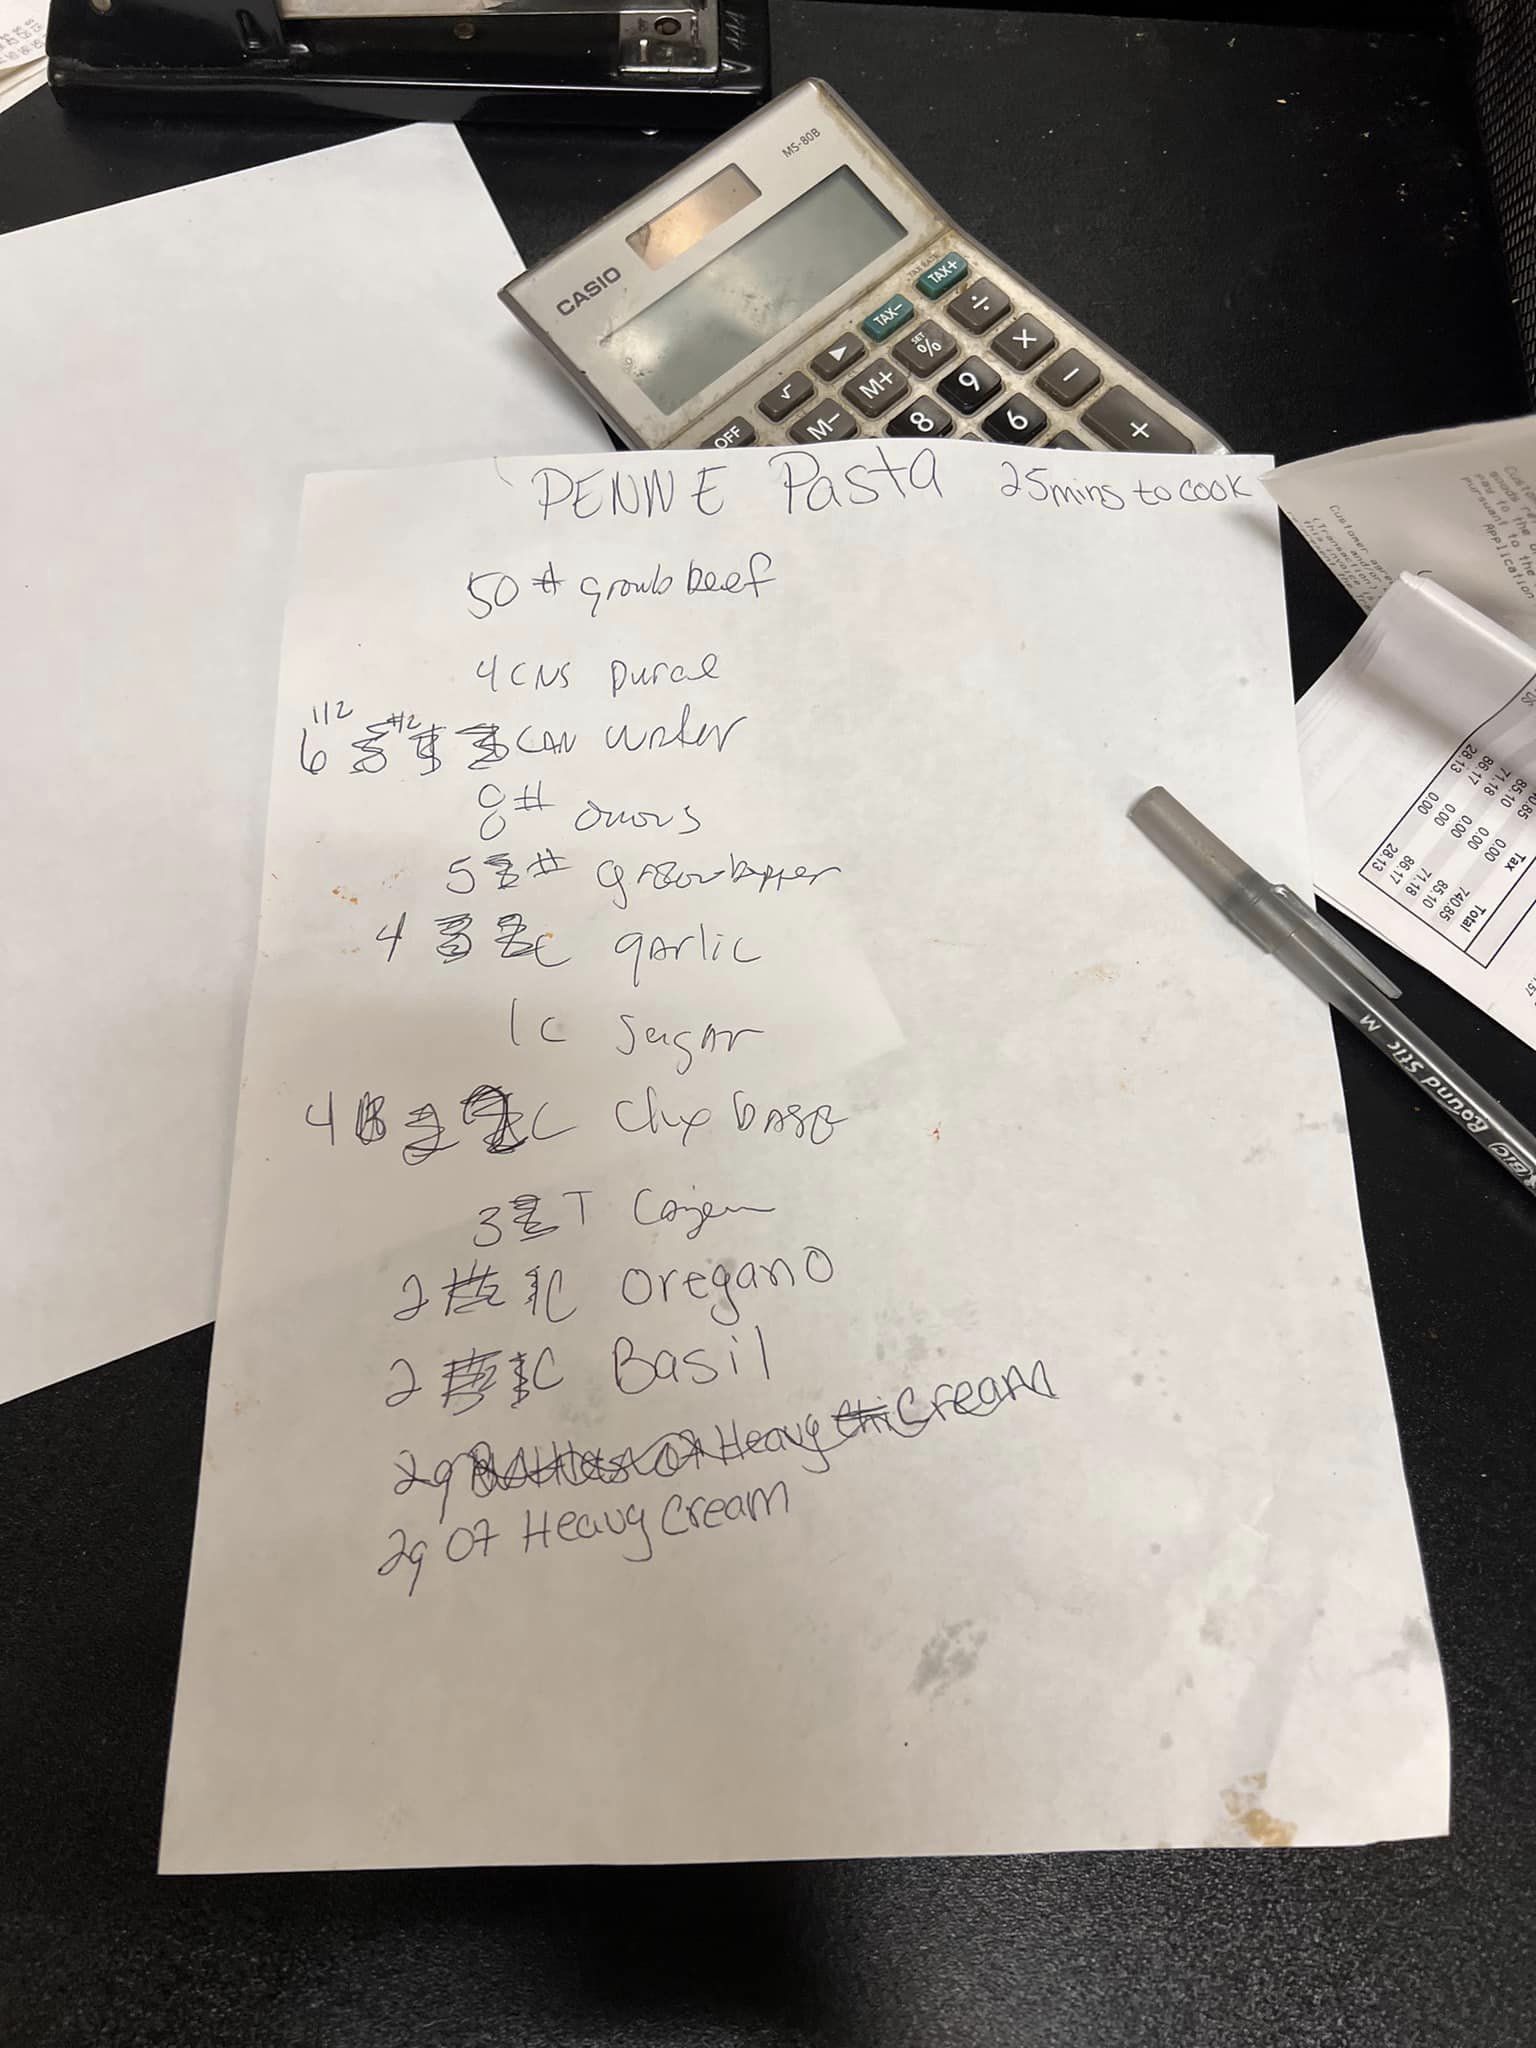 CASIO
MS-80B
TAX RATE
TAX- TAX+
SET
√ ▶ % ÷
OFF M- M+ 9 ×
8 6 -
+
PENNE Pasta 25mins to cook
50 # beef
4 CNS
6 1/2 CAN water
8 #
5 #
4 C garlic
1 C Sugar
4 C base
3 T
2 C Oregano
2 C Basil
2g Heavy Cream
2g Of Heavy Cream
BIC Round Stic M
Tax Total
0.00 740.85
85.10 0.00 85.10
71.18 0.00 71.18
86.17 0.00 86.17
28.13 0.00 28.13
pursuant to the
Application